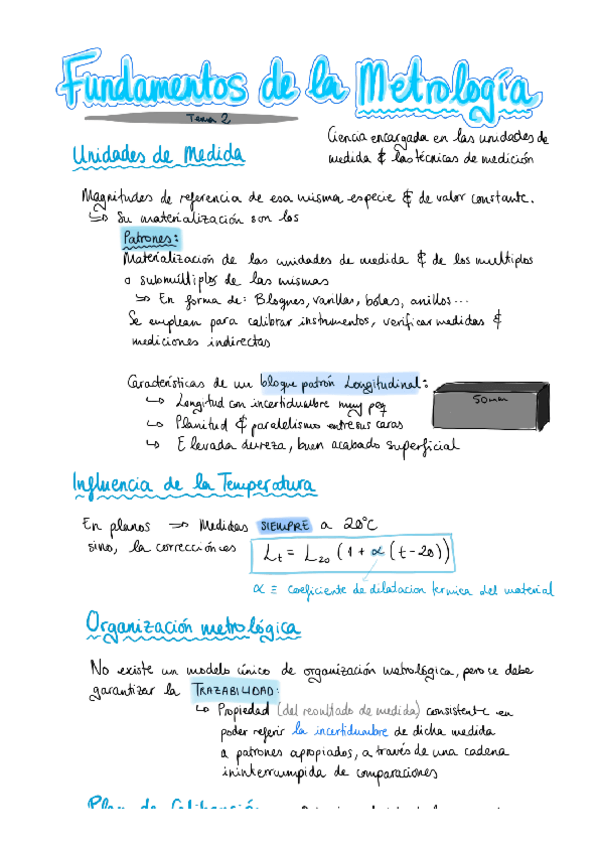 Fundamentos de la Metrología
Tema 2
Ciencia encargada en las unidades de
medida & las técnicas de medición
Unidades de Medida
Magnitudes de referencia de esa misma especie & de valor constante.
↳ Su materialización son los
Patrones:
Materialización de las unidades de medida & de los multiplos
o submúltiplos de las mismas
↳ En forma de: Bloques, varillas, bolas, anillos...
Se emplean para calibrar instrumentos, verificar medidas &
mediciones indirectas
Características de un bloque patrón Longitudinal:
↳ Longitud con incertidumbre muy peq
↳ Planitud & paralelismo entre sus caras
↳ Elevada dureza, buen acabado superficial
50mm
Influencia de la Temperatura
En planos ⇒ Medidas SIEMPRE a 20°C
sino, la corrección es Lt = L20 (1 + α (t - 20))
α ≡ coeficiente de dilatacion termica del material
Organización metrológica
No existe un modelo único de organización metrológica, pero se debe
garantizar la TRAZABILIDAD:
↳ Propiedad (del resultado de medida) consistente en
poder referir la incertidumbre de dicha medida
a patrones apropiados, a través de una cadena
ininterrumpida de comparaciones
Plan de Calibración